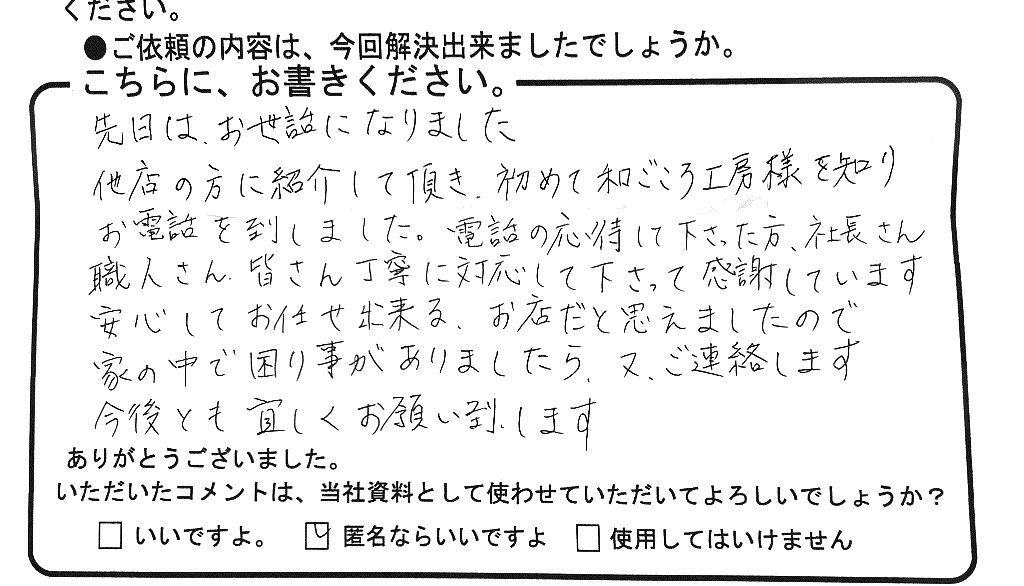 ください。
●ご依頼の内容は、今回解決出来ましたでしょうか。
こちらに、お書きください。
先日は、お世話になりました
他店の方に紹介して頂き、初めて和ごころ工房様を知り
お電話を到しました。電話の応待して下さった方、社長さん
職人さん、皆さん丁寧に対応して下さって感謝しています
安心してお任せ出来る、お店だと思えましたので
家の中で困り事がありましたら、又、ご連絡します
今後とも宜しくお願い到します
ありがとうございました。
いただいたコメントは、当社資料として使わせていただいてよろしいでしょうか？
□ いいですよ。 ☑ 匿名ならいいですよ □ 使用してはいけません